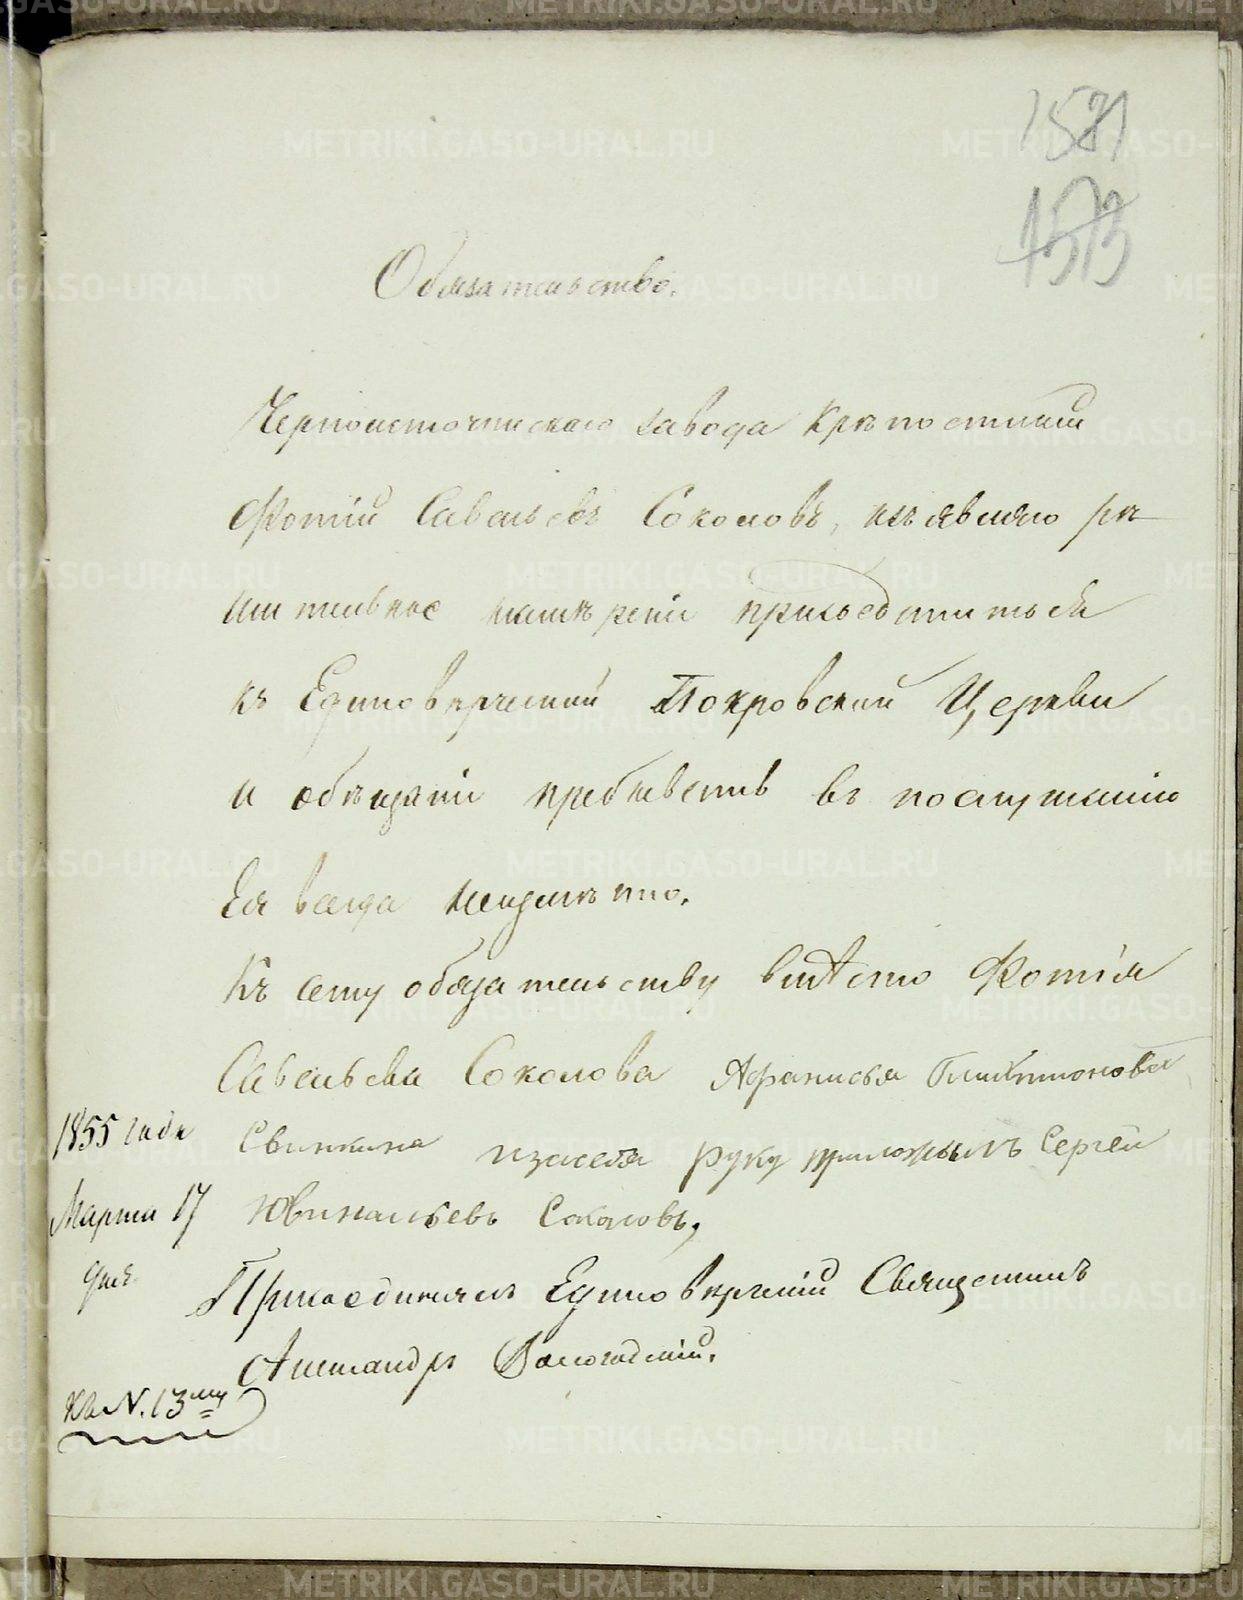 1581
1573
Обязательство.
Черноисточинскаго завода крѣпостный
Фотій Савельевъ Соколовъ, изъявляю рѣ-
шительное намѣреніи присоединиться
къ Единовѣрческой Покровской Церкви
и обѣщаніи пребывать въ послушанію
Ея всегда неизмѣнно.
Къ сему обязательству вмѣсто Фотія
Савельева Соколова Афанасья
1855 года Свинкина изасебя руку приложылъ Сергей
Марта 17 Ювинальевъ Соколовъ,
дня Присоединялъ Единовѣрческій Священникъ
Александръ Вологодскій.
Къ N. 13му